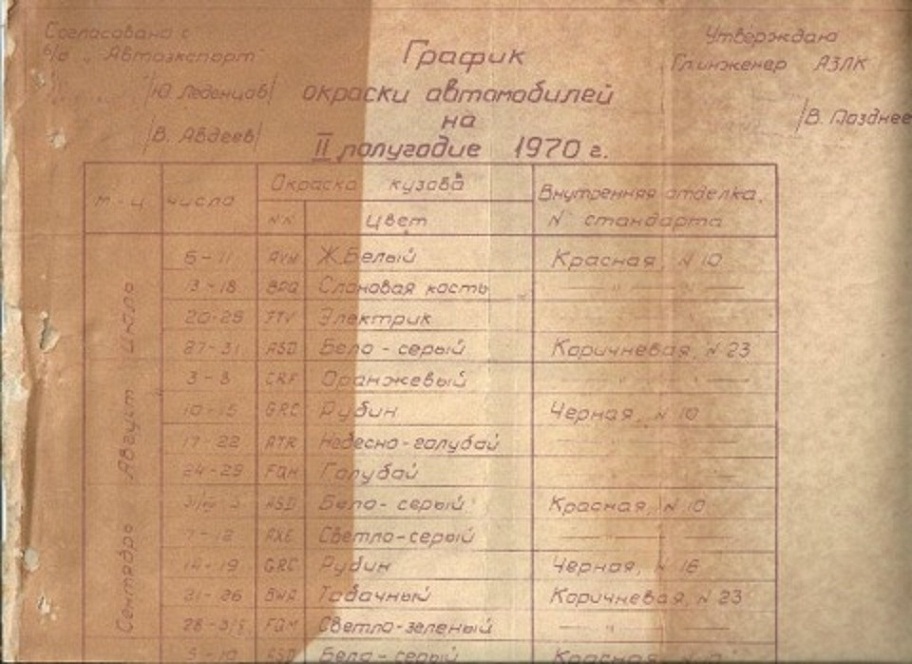 Согласовано с
в/о „Автоэкспорт"
/Ю. Леденцов/
/В. Авдеев/
График
окраски автомобилей
на
II полугодие 1970 г.
Утверждаю
Гл. инженер АЗЛК
/В. Позднее
м-ц числа Окраска кузова Внутренняя отделка,
NN Цвет N стандарта
Июль
6-11 Ж.Белый Красная, N 10
13-18 Слоновая кость — " —
20-25 Электрик
27-31 ASD Бело-серый Коричневая, N 23
Август
3-8 CRF Оранжевый — " —
10-15 GRC Рубин Черная, N 10
17-22 ATR Небесно-голубой
24-29 Голубой
ASD Бело-серый Красная, N 10
Сентябрь
7-12 AXE Светло-серый
14-19 GRC Рубин Черная, N 16
21-26 Табачный Коричневая, N 23
28- Светло-зеленый — " —
5-10 ASD Бело-серый Красная